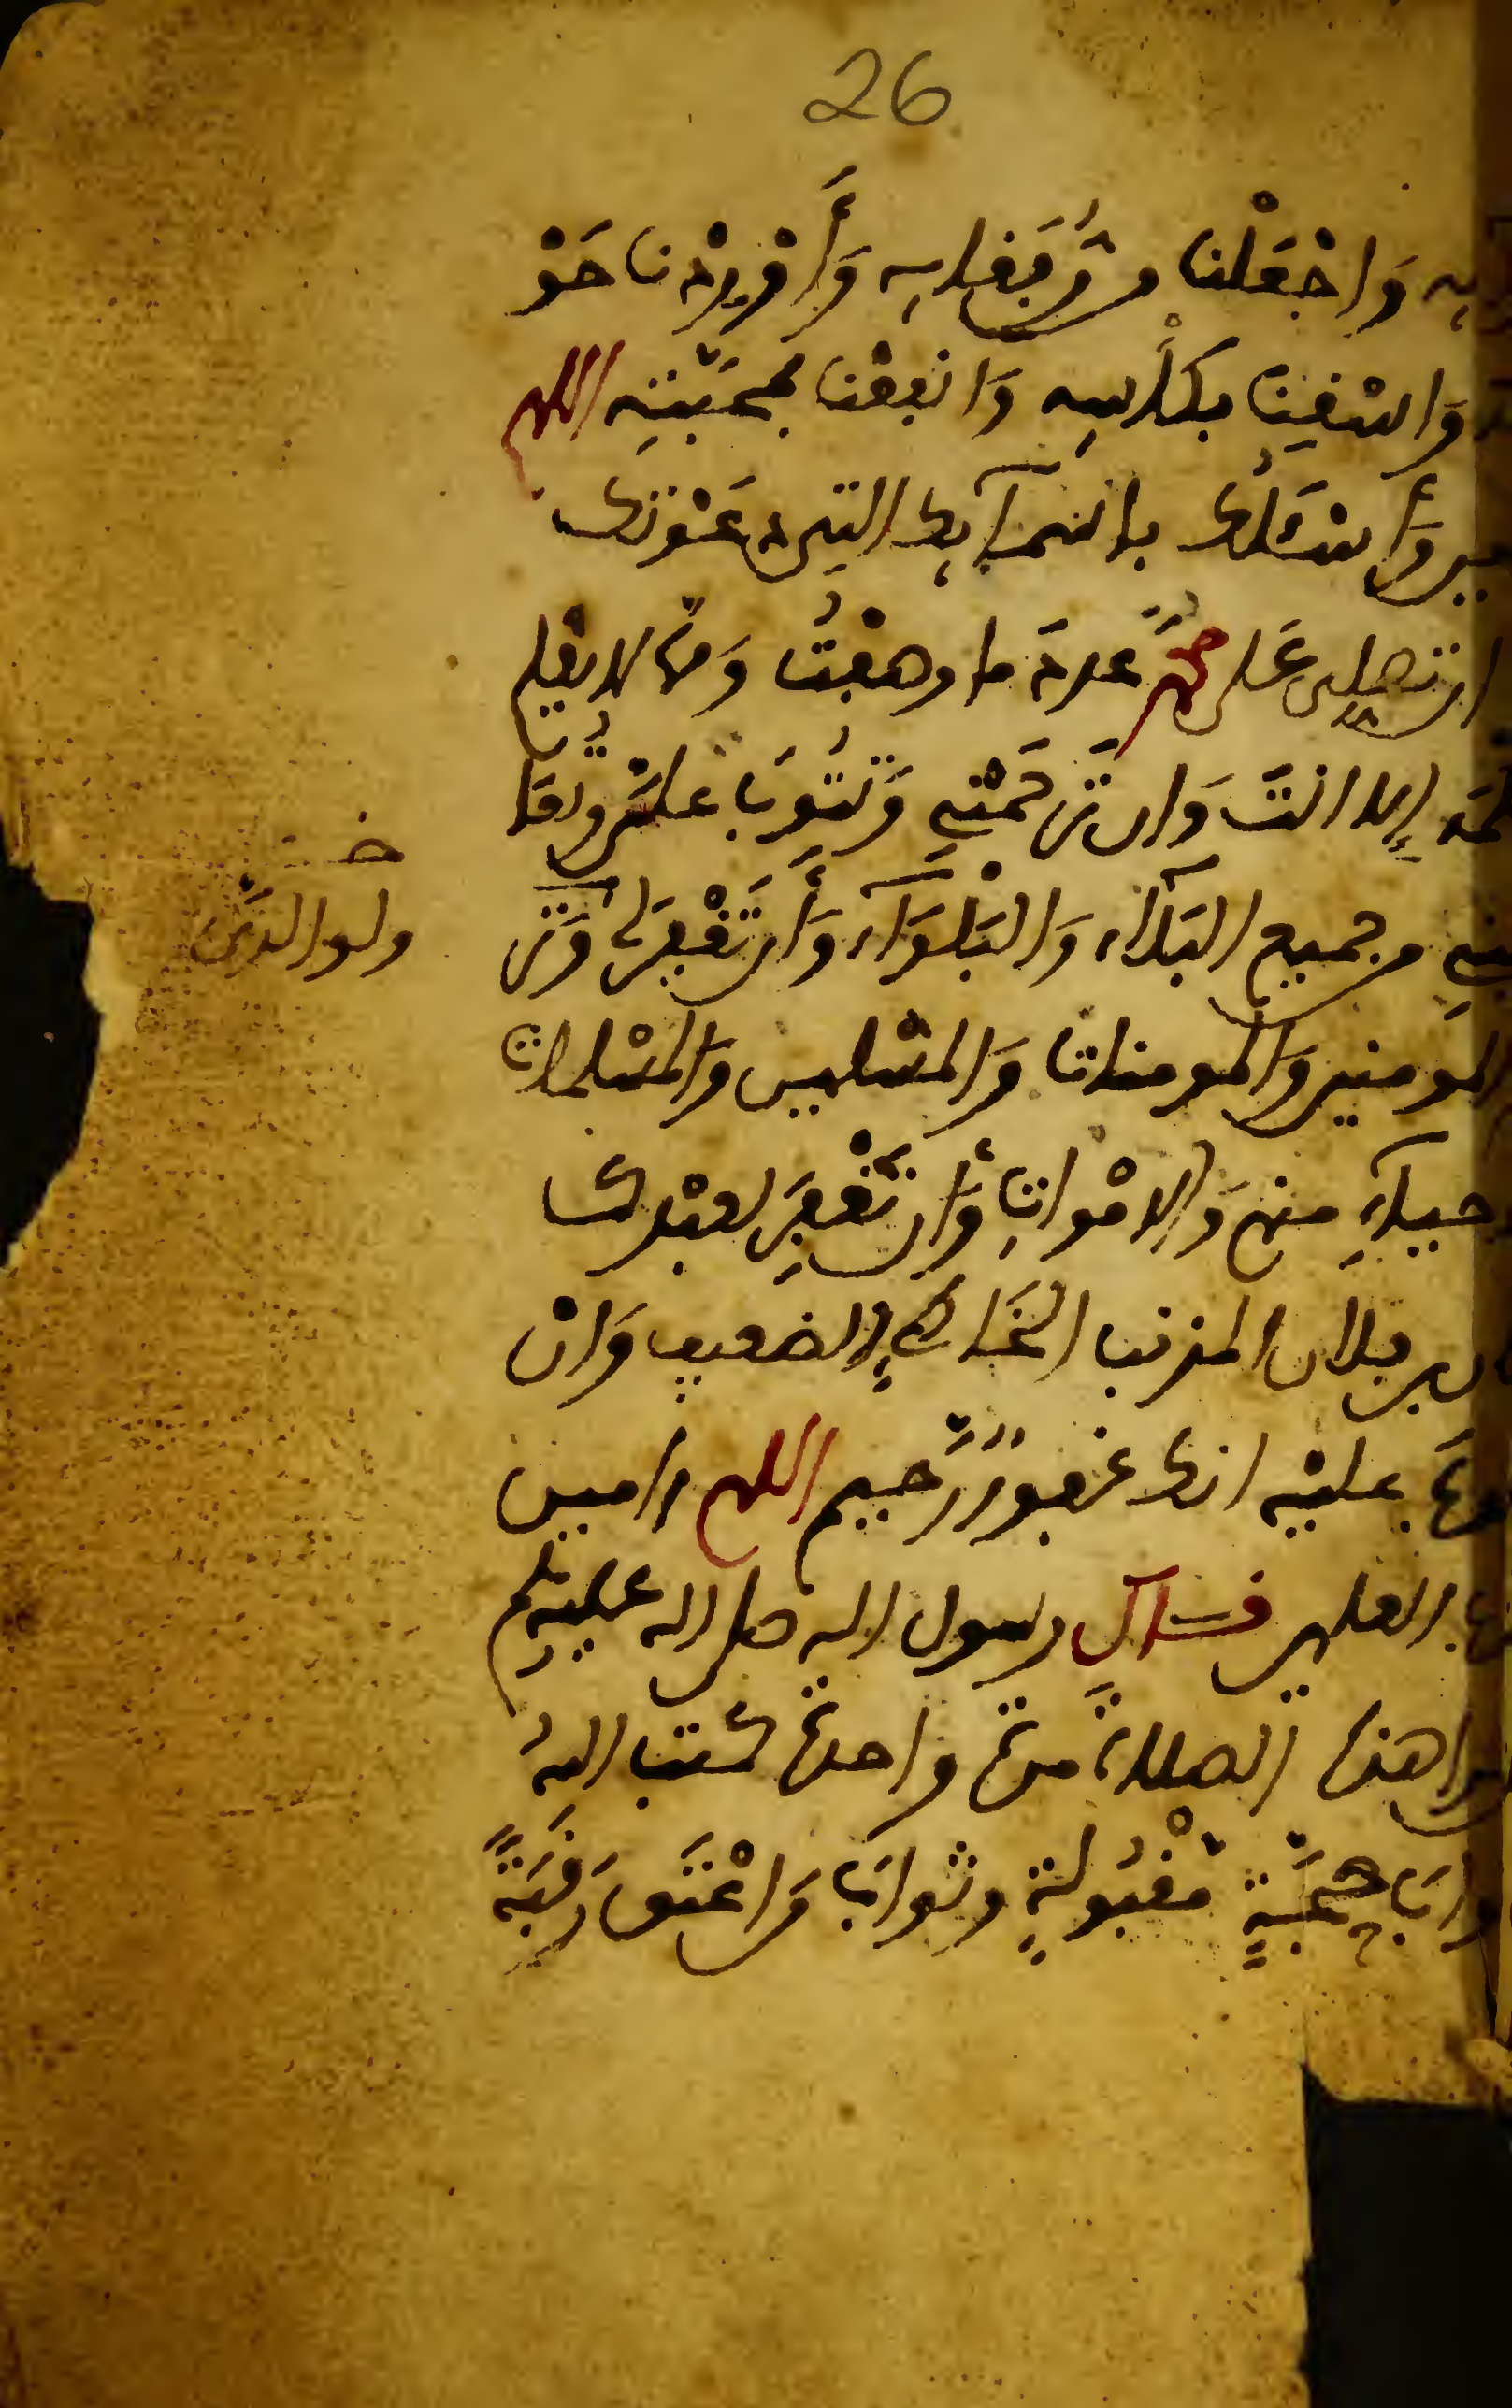 26
به وَاجْعَلْنا مر رفقايه وَأَوْرِدْنا حَوْ
وَاسْقِنَا بكأسِه وَانفعْنا بمحبّتِه اللهم
وأسْئلُك باسمآيك التي دعَوْتك
ان تصلى عَلى محمّد عددَ ما وصفْتُ وَممّا لا يعْلم
إلا انتَ وَان ترحمْنِي وَتَتُوبَ علىَّ وتُعَا
مِن جميع البَلآء وَالبَلْوَآء وَأَن تَغْفِرَ لى وَتر
المومنين وَالمومنات وَالمسْلمين وَالمسْلمات
حيآءِ منهم وَالامْواتِ وَأن تغْفِرَ لعبْدك
بن فلان المذنب الخَاطِي الضعيف وَانْ
عليْه انك غفورٌ رَّحيم اللهم ءامين
العلمين قــال رسول الله صلى الله عليه وسلم
هذه الصلاةَ مرة واحدة كتب اللهُ
حجَّةٍ مقْبُولةٍ وثوابَ مَن اعْتَق رَقَبَةً
خـ
ولوالديَّ